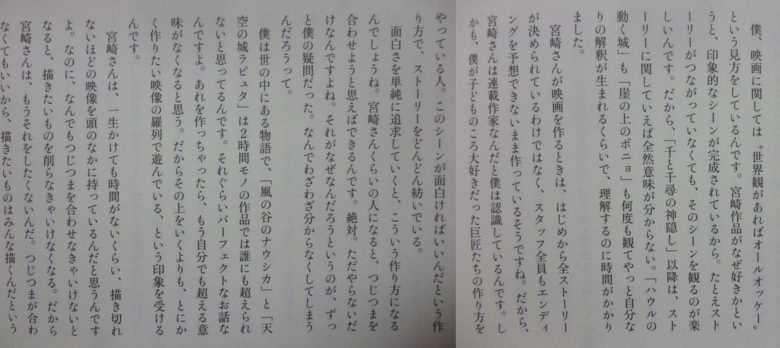 僕、映画に関しては〝世界観があればオールオッケー〟
という見方をしているんです。宮崎作品がなぜ好きかとい
うと、印象的なシーンが完成されているから。たとえスト
ーリーがつながっていなくても、そのシーンを観るのが楽
しいんです。だから、「千と千尋の神隠し」以降は、スト
ーリーに関していえば全然意味が分からない。「ハウルの
動く城」も「崖の上のポニョ」も何度も観てやっと自分な
りの解釈が生まれるくらいで、理解するのに時間がかかり
ました。
宮崎さんが映画を作るときは、はじめから全ストーリー
が決められているわけではなく、スタッフ全員もエンディ
ングを予想できないまま作っているそうですね。だから、
宮崎さんは連載作家なんだと僕は認識しているんです。し
かも、僕が子どものころ大好きだった巨匠たちの作り方を
やっている人。このシーンが面白ければいいんだという作
り方で、ストーリーをどんどん紡いでいる。
面白さを単純に追求していくと、こういう作り方になる
んでしょうね。宮崎さんくらいの人になると、つじつまを
合わせようと思えばできるんです。絶対。ただやらないだ
けなんですよね。それがなぜなんだろうというのが、ずっ
と僕の疑問だった。なんでわざわざ分からなくしてしまう
んだろうって。
僕は世の中にある物語で、「風の谷のナウシカ」と「天
空の城ラピュタ」は2時間モノの作品では誰にも超えられ
ないと思ってるんです。それくらいパーフェクトなお話な
んですよ。あれを作っちゃったら、もう自分でも超える意
味がなくなると思う。だからその上をいくよりも、とにか
く作りたい映像の羅列で遊んでいる、という印象を受ける
んです。
宮崎さんは、一生かけても時間がないくらい、描き切れ
ないほどの映像を頭のなかに持っているんだと思うんです
よ。なのに、なんでもつじつまを合わせなきゃいけないと
なると、描きたいものを削らなきゃいけなくなる。だから
宮崎さんは、もうそれをしたくないんだ。つじつまが合わ
なくてもいいから、描きたいものはみんな描くんだという